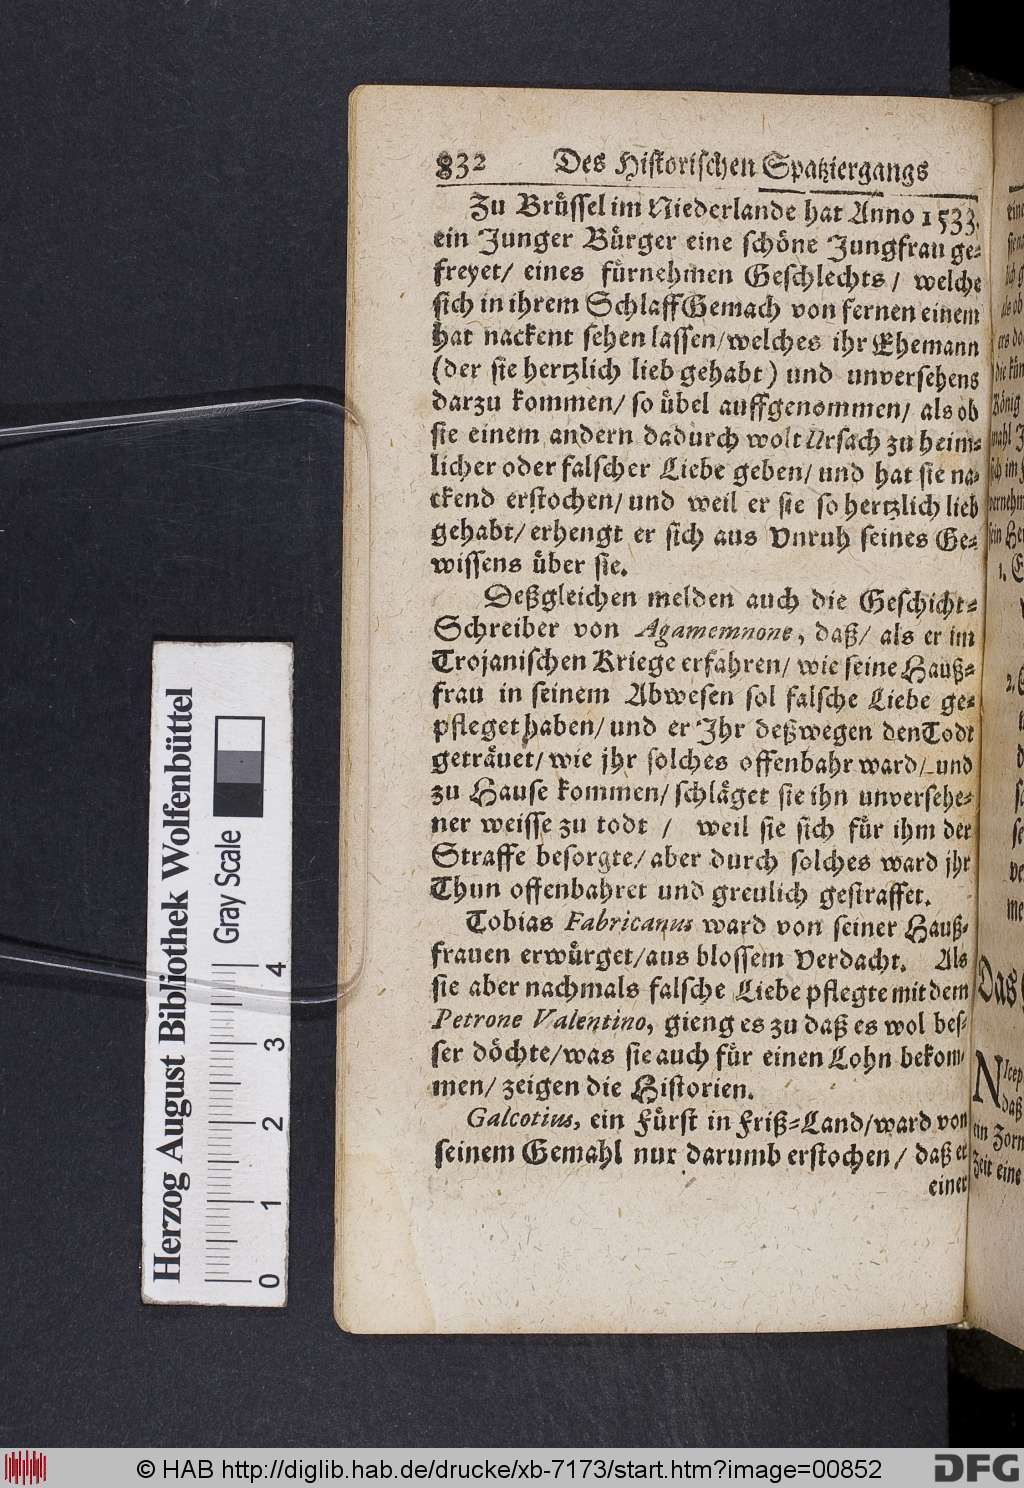 832 Des Historischen Spatziergangs
Zu Brüssel im Niederlande hat Anno 1533.
ein Junger Bürger eine schöne Jungfrau ge-
freyet/ eines fürnehmen Geschlechts/ welche
sich in ihrem SchlaffGemach von fernen einem
hat nackent sehen lassen/welches ihr Ehemann
(der sie hertzlich lieb gehabt) und unversehens
darzu kommen/ so übel auffgenommen/ als ob
sie einem andern dadurch wolt Ursach zu heim-
licher oder falscher Liebe geben/ und hat sie na-
ckend erstochen/ und weil er sie so hertzlich lieb
gehabt/ erhengt er sich aus Unruh seines Ge-
wissens über sie.
Deßgleichen melden auch die Geschicht-
Schreiber von Agamemnone, daß/ als er im
Trojanischen Kriege erfahren/ wie seine Hauß-
frau in seinem Abwesen sol falsche Liebe ge-
pfleget haben/ und er Ihr deßwegen den Todt
geträuet/ wie jhr solches offenbahr ward/ und
zu Hause kommen/ schläget sie ihn unversehe-
ner weisse zu todt / weil sie sich für ihm der
Straffe besorgte/ aber durch solches ward jhr
Thun offenbahret und greulich gestraffet.
Tobias Fabricanus ward von seiner Hauß-
frauen erwürget/aus blossem Verdacht. Als
sie aber nachmals falsche Liebe pflegte mit dem
Petrone Valentino, gieng es zu daß es wol bes-
ser döchte/was sie auch für einen Lohn bekom-
men/ zeigen die Historien.
Galcotius, ein Fürst in Frieß-Land/ward von
seinem Gemahl nur darumb erstochen/ daß er
einer
Herzog August Bibliothek Wolfenbüttel
Gray Scale
0 1 2 3 4
© HAB http://diglib.hab.de/drucke/xb-7173/start.htm?image=00852
DFG